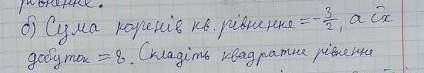 рівнення.
б) Сума коренів кв. рівнення = -3/2, а їх
добуток = 8. Складіть квадратне рівнення